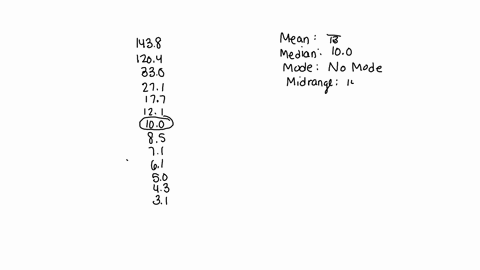 143.8
120.4
33.0
27.1
17.7
12.1
10.0
8.5
7.1
6.1
5.0
4.3
3.1
Mean: 13
Median: 10.0
Mode: No Mode
Midrange: